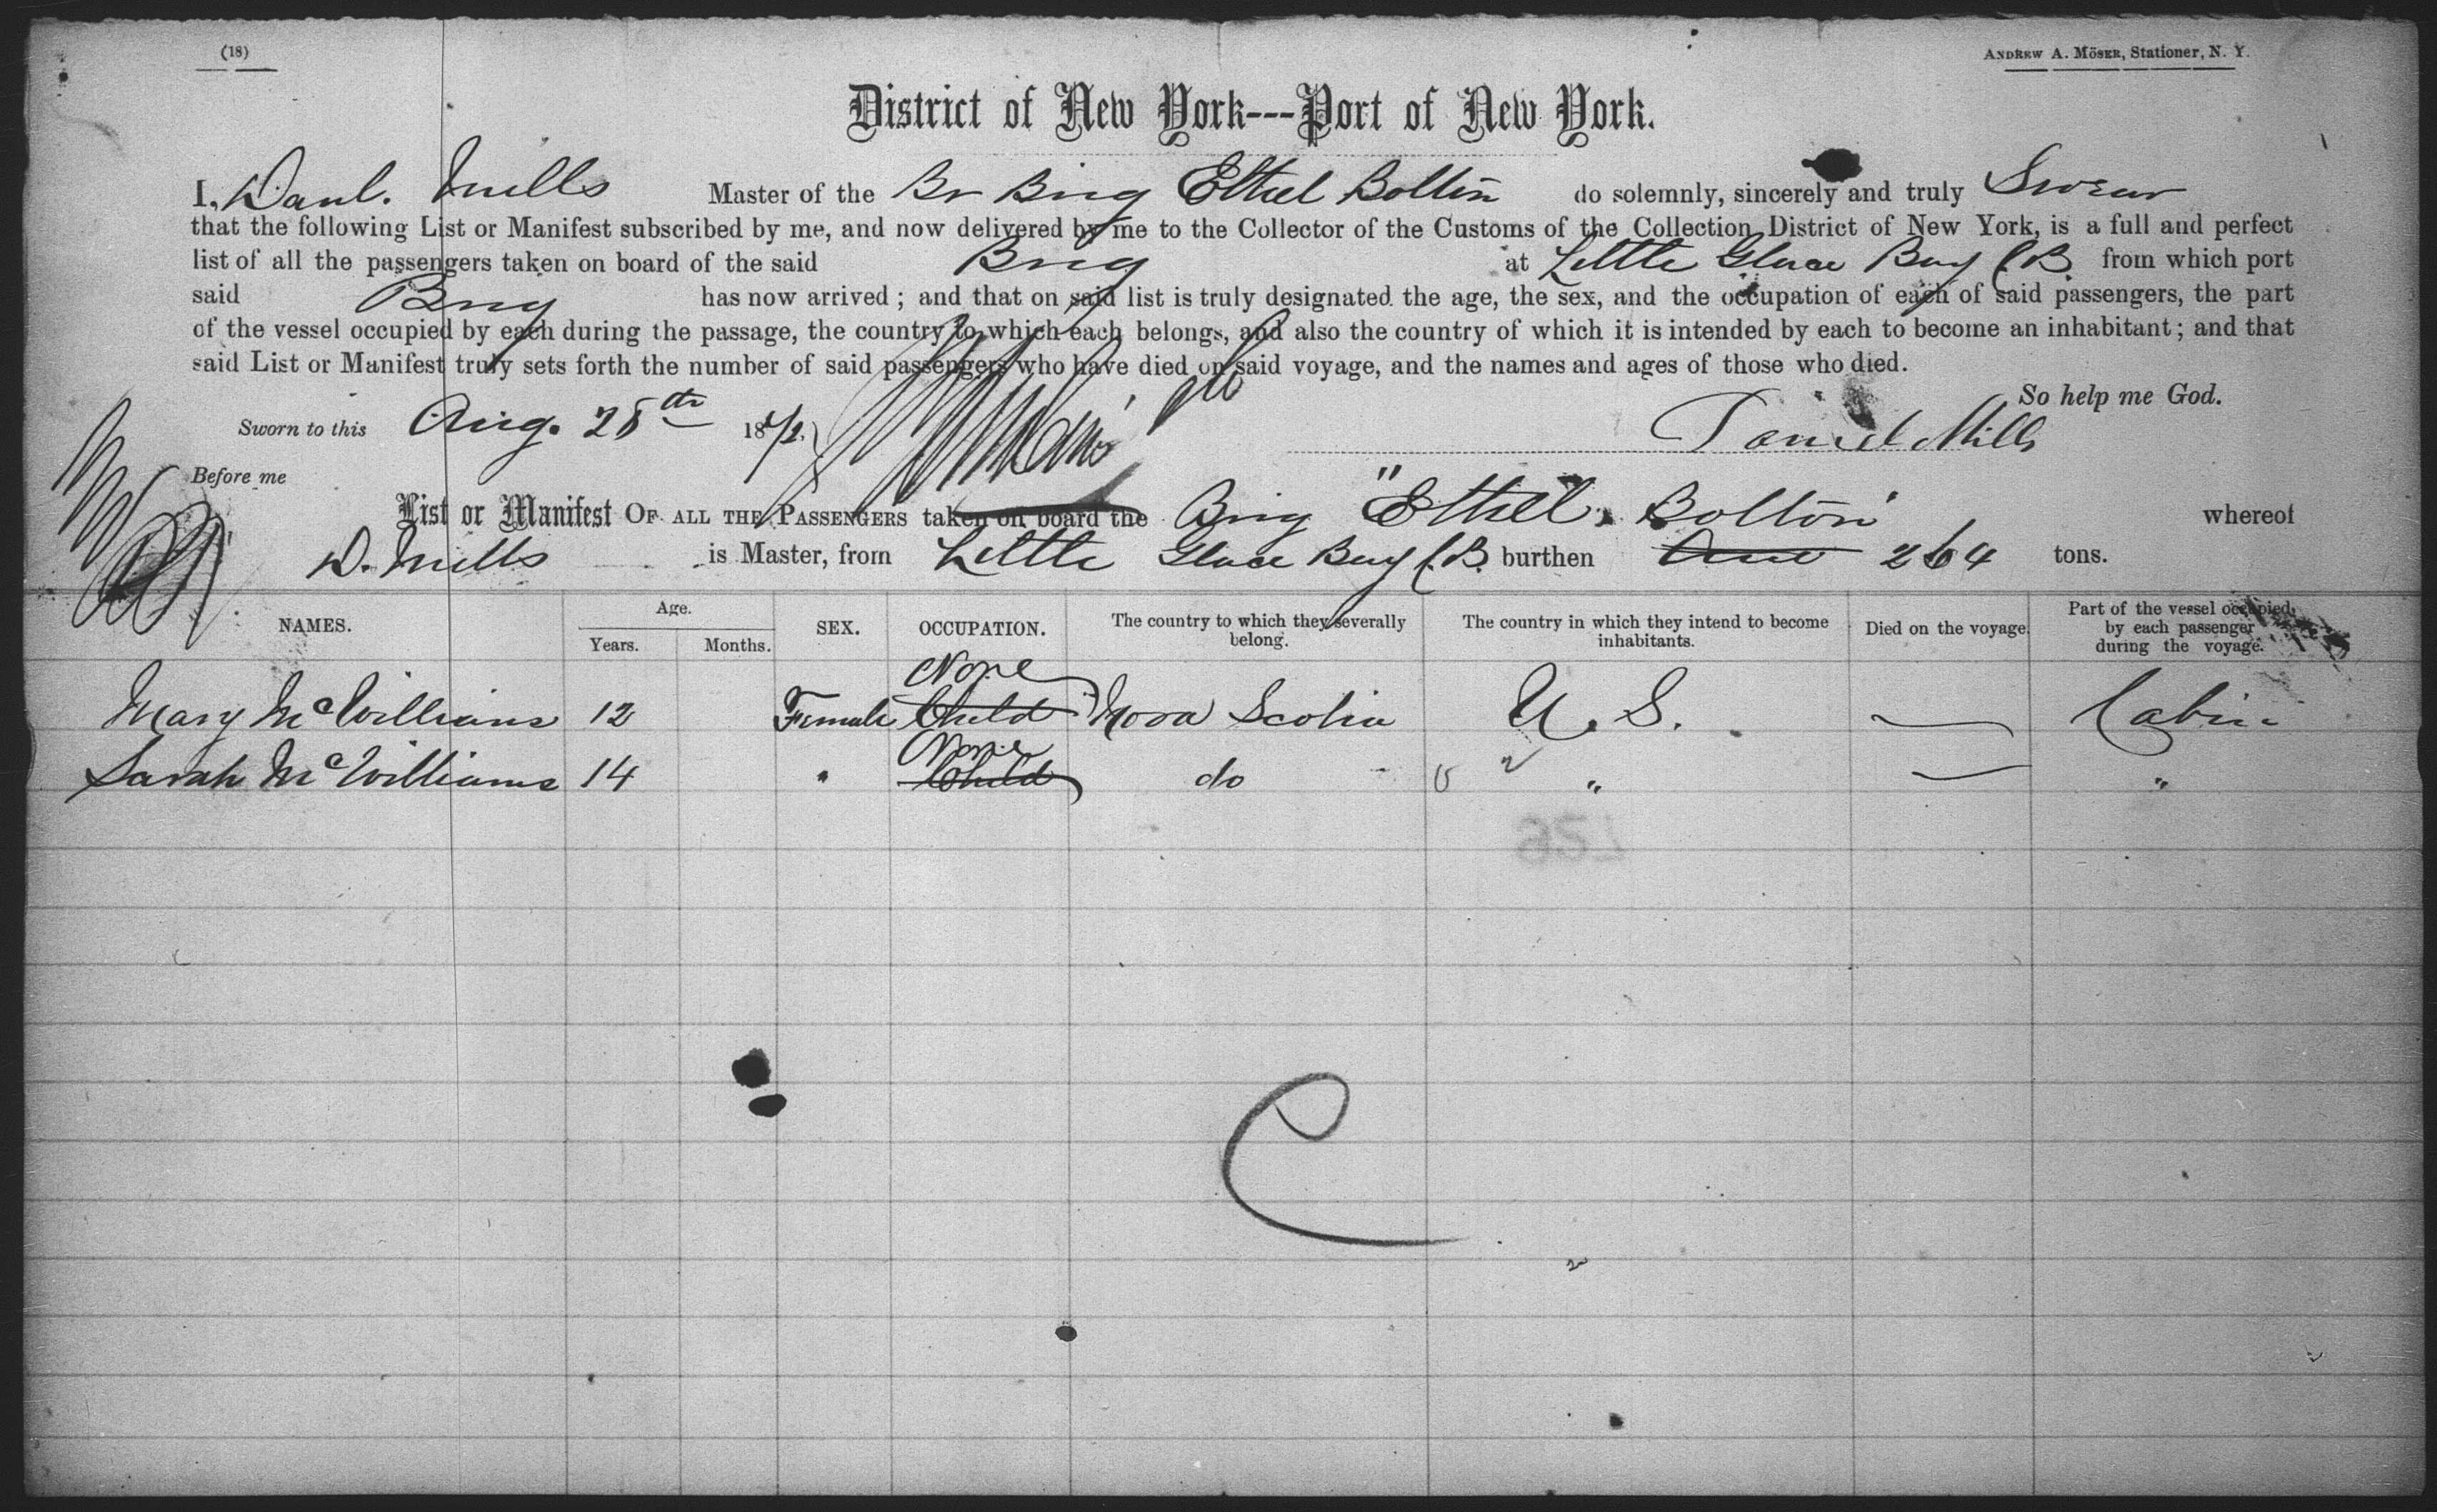 (18)
ANDREW A. MÖSER, Stationer, N. Y.
District of New York---Port of New York.
I, Danl. Mills Master of the Br Brig Ethel Bolton do solemnly, sincerely and truly Swear
that the following List or Manifest subscribed by me, and now delivered by me to the Collector of the Customs of the Collection District of New York, is a full and perfect
list of all the passengers taken on board of the said Brig at Little Glace Bay C.B. from which port
said Brig has now arrived ; and that on said list is truly designated the age, the sex, and the occupation of each of said passengers, the part
of the vessel occupied by each during the passage, the country to which each belongs, and also the country of which it is intended by each to become an inhabitant ; and that
said List or Manifest truly sets forth the number of said passengers who have died on said voyage, and the names and ages of those who died.
So help me God.
Sworn to this Aug. 28th 187 Daniel Mills
Before me
List or Manifest OF ALL THE PASSENGERS taken on board the Brig "Ethel Bolton" whereof
D. Mills is Master, from Little Glace Bay C.B. burthen 264 tons.
NAMES. Age. Years. Months. SEX. OCCUPATION. The country to which they severally belong. The country in which they intend to become inhabitants. Died on the voyage. Part of the vessel occupied by each passenger during the voyage.
None
Mary McWilliams 12 Female Child Nova Scotia U. S. — Cabin
None
Sarah McWilliams 14 " Child do " — "
C